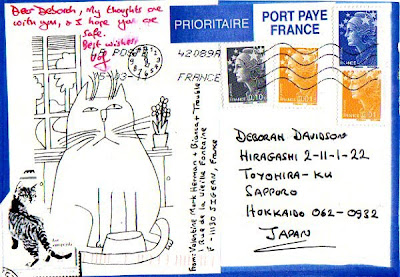 Dear Deborah, My thoughts are
with you, & I hope you are
safe.
Best wishes
PRIORITAIRE
PORT PAYE
FRANCE
LA POSTE
42089A
FRANCE
FRANCE
0,10
FRANCE
0,01
FRANCE
FRANCE
0,01
From: Valentine Mark Herman + Bianca + Trouble
1, Rue de la Vieille Fontaine
F - 11130 SIGEAN, France
DEBORAH DAVIDSON
HIRAGASHI 2-11-1-22
TOYOHIRA-KU
SAPPORO
HOKKAIDO 062-0932
JAPAN